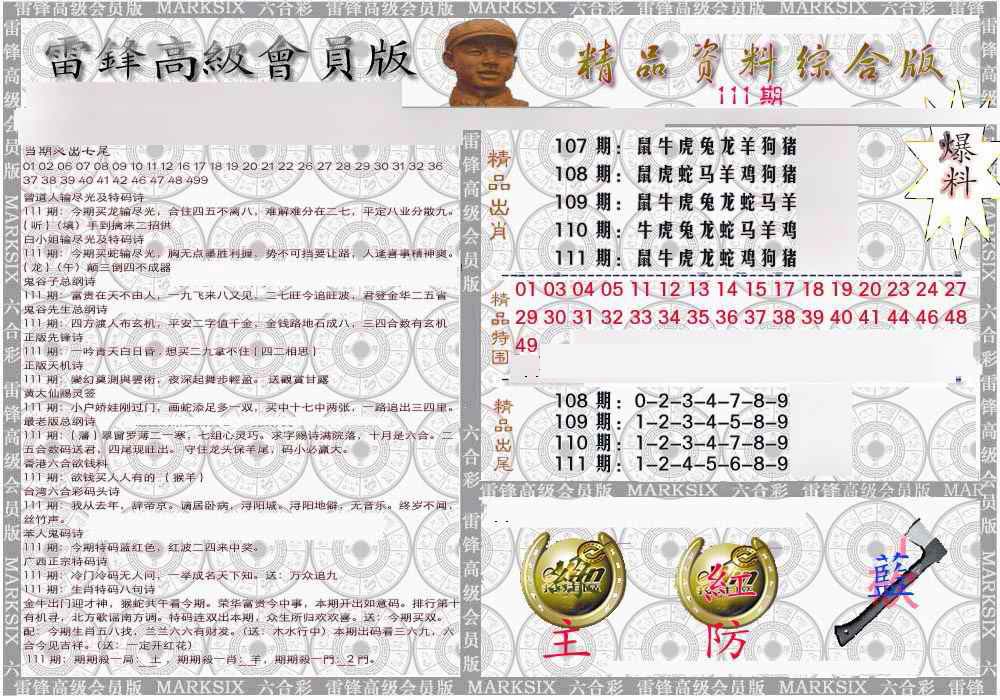 雷锋高级会员版 MARKSIX 六合彩 雷锋高级会员版 MARKSIX 六合彩 雷锋高级会员版 MARKSIX 六合彩 雷锋
雷鋒高級會員版
精品资料综合版
111期
爆料
01 02 06 07 08 09 10 11 12 16 17 18 19 20 21 22 26 27 28 29 30 31 32 36
37 38 39 40 41 42 46 47 48 499
曾道人输尽光及特码诗
111 期：今期买龙输尽光，合住四五不离八，难解难分在二七，平定八业分散九。
{ 听 }（填）手到擒来二招供
白小姐输尽光及特码诗
111 期：今期买蛇输尽光，胸无点墨胜利握，势不可挡要让路，人逢喜事精神爽。
{ 龙 }（午）颠三倒四不成器
鬼谷子总纲诗
111 期：富贵在天不由人，一九飞来八又见，三七旺今追旺波，君登金华二五省
鬼谷先生总纲诗
111 期：四方渡人布玄机，平安二字值千金，金钱路地石成八，三四合数有玄机
正版先锋诗
111 期：一吟青天白日昏，想买二九拿不住 { 四二相思 }
正版天机诗
111 期：變幻莫測與雲術，夜深起舞步輕盈。 送觀賞甘露
黄大仙赐灵签
111 期：小户娇娃刚过门，画蛇添足多一双，买中十七中两张，一路追出三四里。
最老版总纲诗
111 期：{ 藩 } 翠窗罗薄二一寒，七组心灵巧。求字赐诗满院落，十月是六合。二
五合数码送君，四尾现旺出。 守住龙头保羊尾，码小必赢大。
香港六合欲钱料
111 期：欲钱买人人有的 { 猴羊 }
台湾六合彩码头诗
111 期：我从去年，辞帝京。谪居卧病，浔阳城。浔阳地僻，无音乐。终岁不闻，
丝竹声。
苯人鬼码诗
111 期：今期特码蓝红色，红波二四来中奖。
广西正宗特码诗
111 期：冷门冷码无人问，一举成名天下知。送：万众追九
111 期：生肖特码八句诗
金牛出门迎才神，猴蛇共午看今期。荣华富贵今中事，本期开出如意码。排行第十
有机寻，北方歌谣南方调。特码连双出本期，众生所归欢欢喜。送：今期买双。
配：今期生肖五八找，兰兰六六有财发。（送：木水行中）本期出码看三六九，六
合今见吉祥。（送：一定开红花）
111 期：期期殺一局：土 ，期期殺一肖：羊，期期殺一門：2 門。
精品出肖
107 期：鼠牛虎兔龙羊狗猪
108 期：鼠虎蛇马羊鸡狗猪
109 期：鼠牛虎兔龙蛇马羊
110 期：牛虎兔龙蛇马羊鸡
111 期：鼠牛虎龙蛇鸡狗猪
精品特围
01 03 04 05 11 12 13 14 15 17 18 19 20 23 24 27
29 30 31 32 33 34 35 36 37 38 39 40 41 44 46 48
49
精品出尾
108 期：0-2-3-4-7-8-9
109 期：1-2-3-4-5-8-9
110 期：1-2-3-4-7-8-9
111 期：1-2-4-5-6-8-9
雷锋高级会员版 MARKSIX 六合彩 雷锋高级会员版 MAR
主
紅
防
藍
雷锋高级会员版 MARKSIX 六合彩 雷锋高级会员版 MARKSIX 六合彩 雷锋高级会员版 MARKSIX 六合彩 雷锋